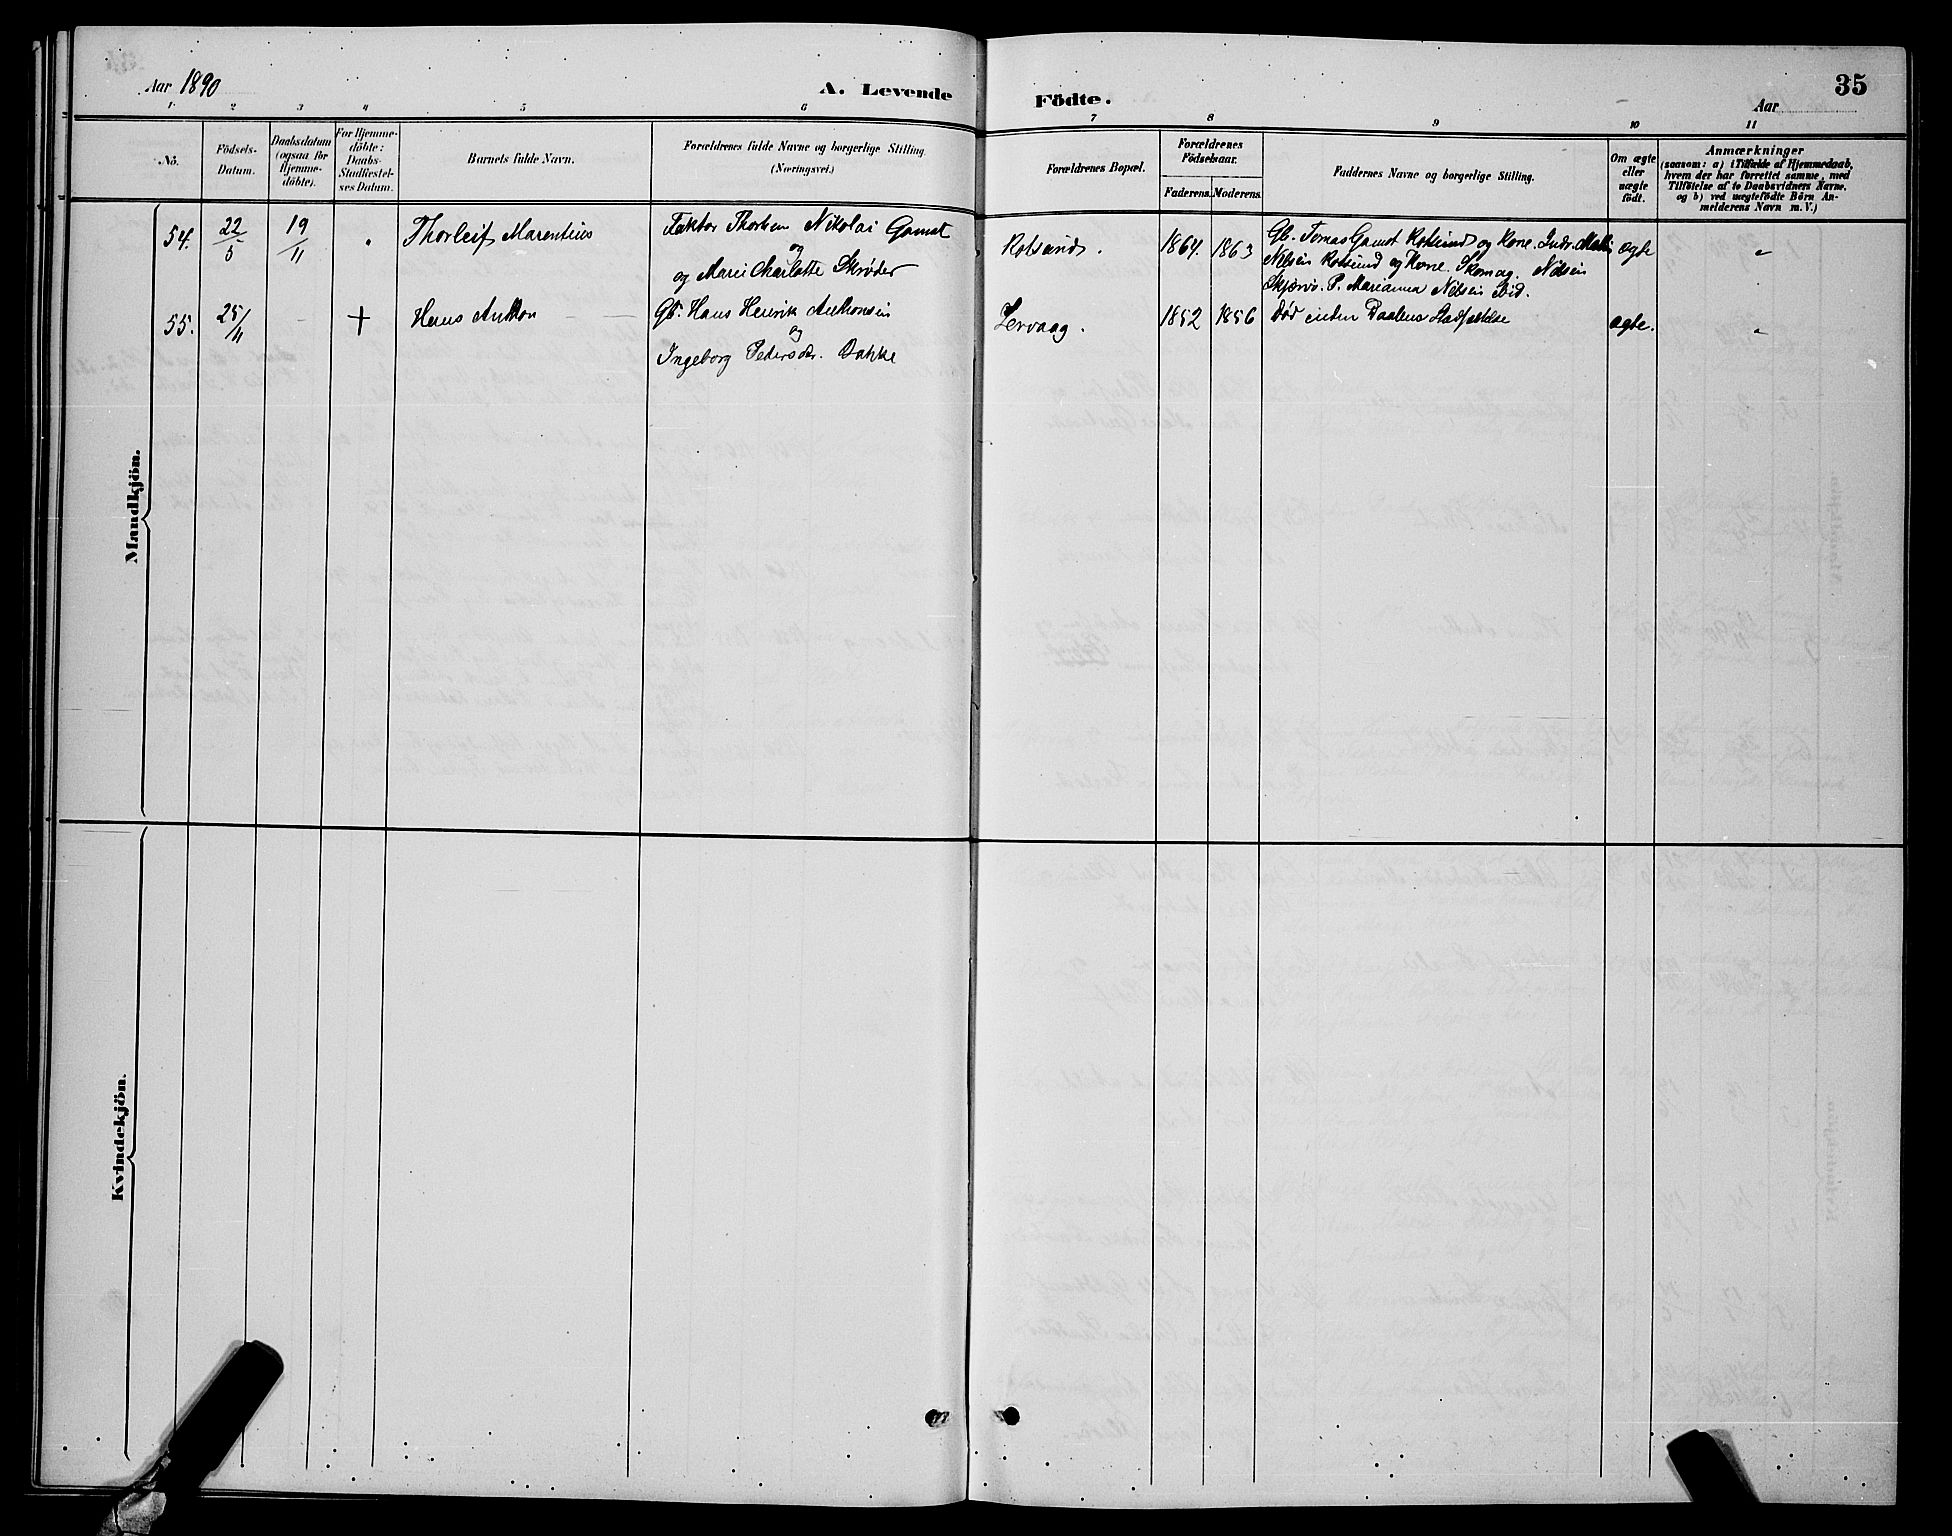 Aar 1890
A. Levende
Födte.
Aar
35
1 2 3 4 5 6 7 8 9 10 11
No.
Födsels-
Datum.
Daabsdatum
(ogsaa for
Hjemme-
döbte).
For Hjemme-
döbte:
Daabs-
Stadfæstel-
ses Datum.
Barnets fulde Navn.
Forældrenes fulde Navne og borgerlige Stilling.
(Næringsvei.)
Forældrenes Bopæl.
Forældrenes
Födselsaar.
Faderens. Moderens.
Faddernes Navne og borgerlige Stilling.
Om ægte
eller
uægte
födt.
Anmærkninger
(saasom: a) i Tilfælde af Hjemmedaab,
hvem der har forrettet samme, med
Tilföielse af to Daabsvidners Navne,
og b) ved uægtefödte Börn An-
melderens Navn m.V.)
Mandkjön.
54. 22/5 19/11 Thorleif Marentius
Faktor Nikolai Gamst
og
og Marei Charlotte Skrøder
Rotsund. 1864. 1863
Gb. Tomas Gamst Rotsund og Kone. Inds.
Nilsen Rotsund og Kone. Skomag. Nilsen
Skjærvø. P. Marianna Nilsen ibid.
ægte "
55. 25/11 – + Hans Anthon
Gb. Hans Henrik Anthonsen
og
Ingeborg Pedersdr. Bakke
Lervaag. 1852 1856 Død inden Daabens Stadfæstelse ægte. "
Kvindekjön.